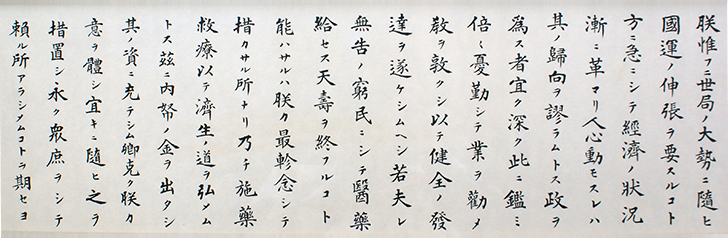 朕惟フニ世局ノ大勢ニ隨ヒ
國運ノ伸張ヲ要スルコト
方ニ急ニシテ經濟ノ狀況
漸ニ革マリ人心動モスレハ
其ノ歸向ヲ謬ラムトス政ヲ
爲ス者宜ク深ク此ニ鑑ミ
倍〻憂勤シテ業ヲ勸メ
敎ヲ敦クシ以テ健全ノ發
達ヲ遂ケシムヘシ若夫レ
無告ノ窮民ニシテ醫藥
給セス天壽ヲ終フルコト
能ハサルハ朕カ最軫念シテ
措カサル所ナリ乃チ施藥
救療以テ濟生ノ道ヲ弘メム
トス茲ニ內帑ノ金ヲ出タシ
其ノ資ニ充テシム卿克ク朕カ
意ヲ體シ宜キニ隨ヒ之ヲ
措置シ永ク衆庶ヲシテ
頼ル所アラシメムコトヲ期セヨ